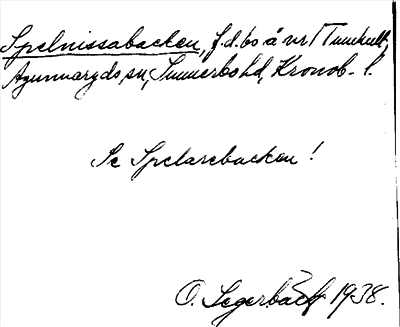 Spelnissabacken, f.d. bo å vr Tunkull,
Agunnaryds, sn, Sunnerbohd, Kronob. l.
Se Spelarebacken!
O. Segerbäck 1938.